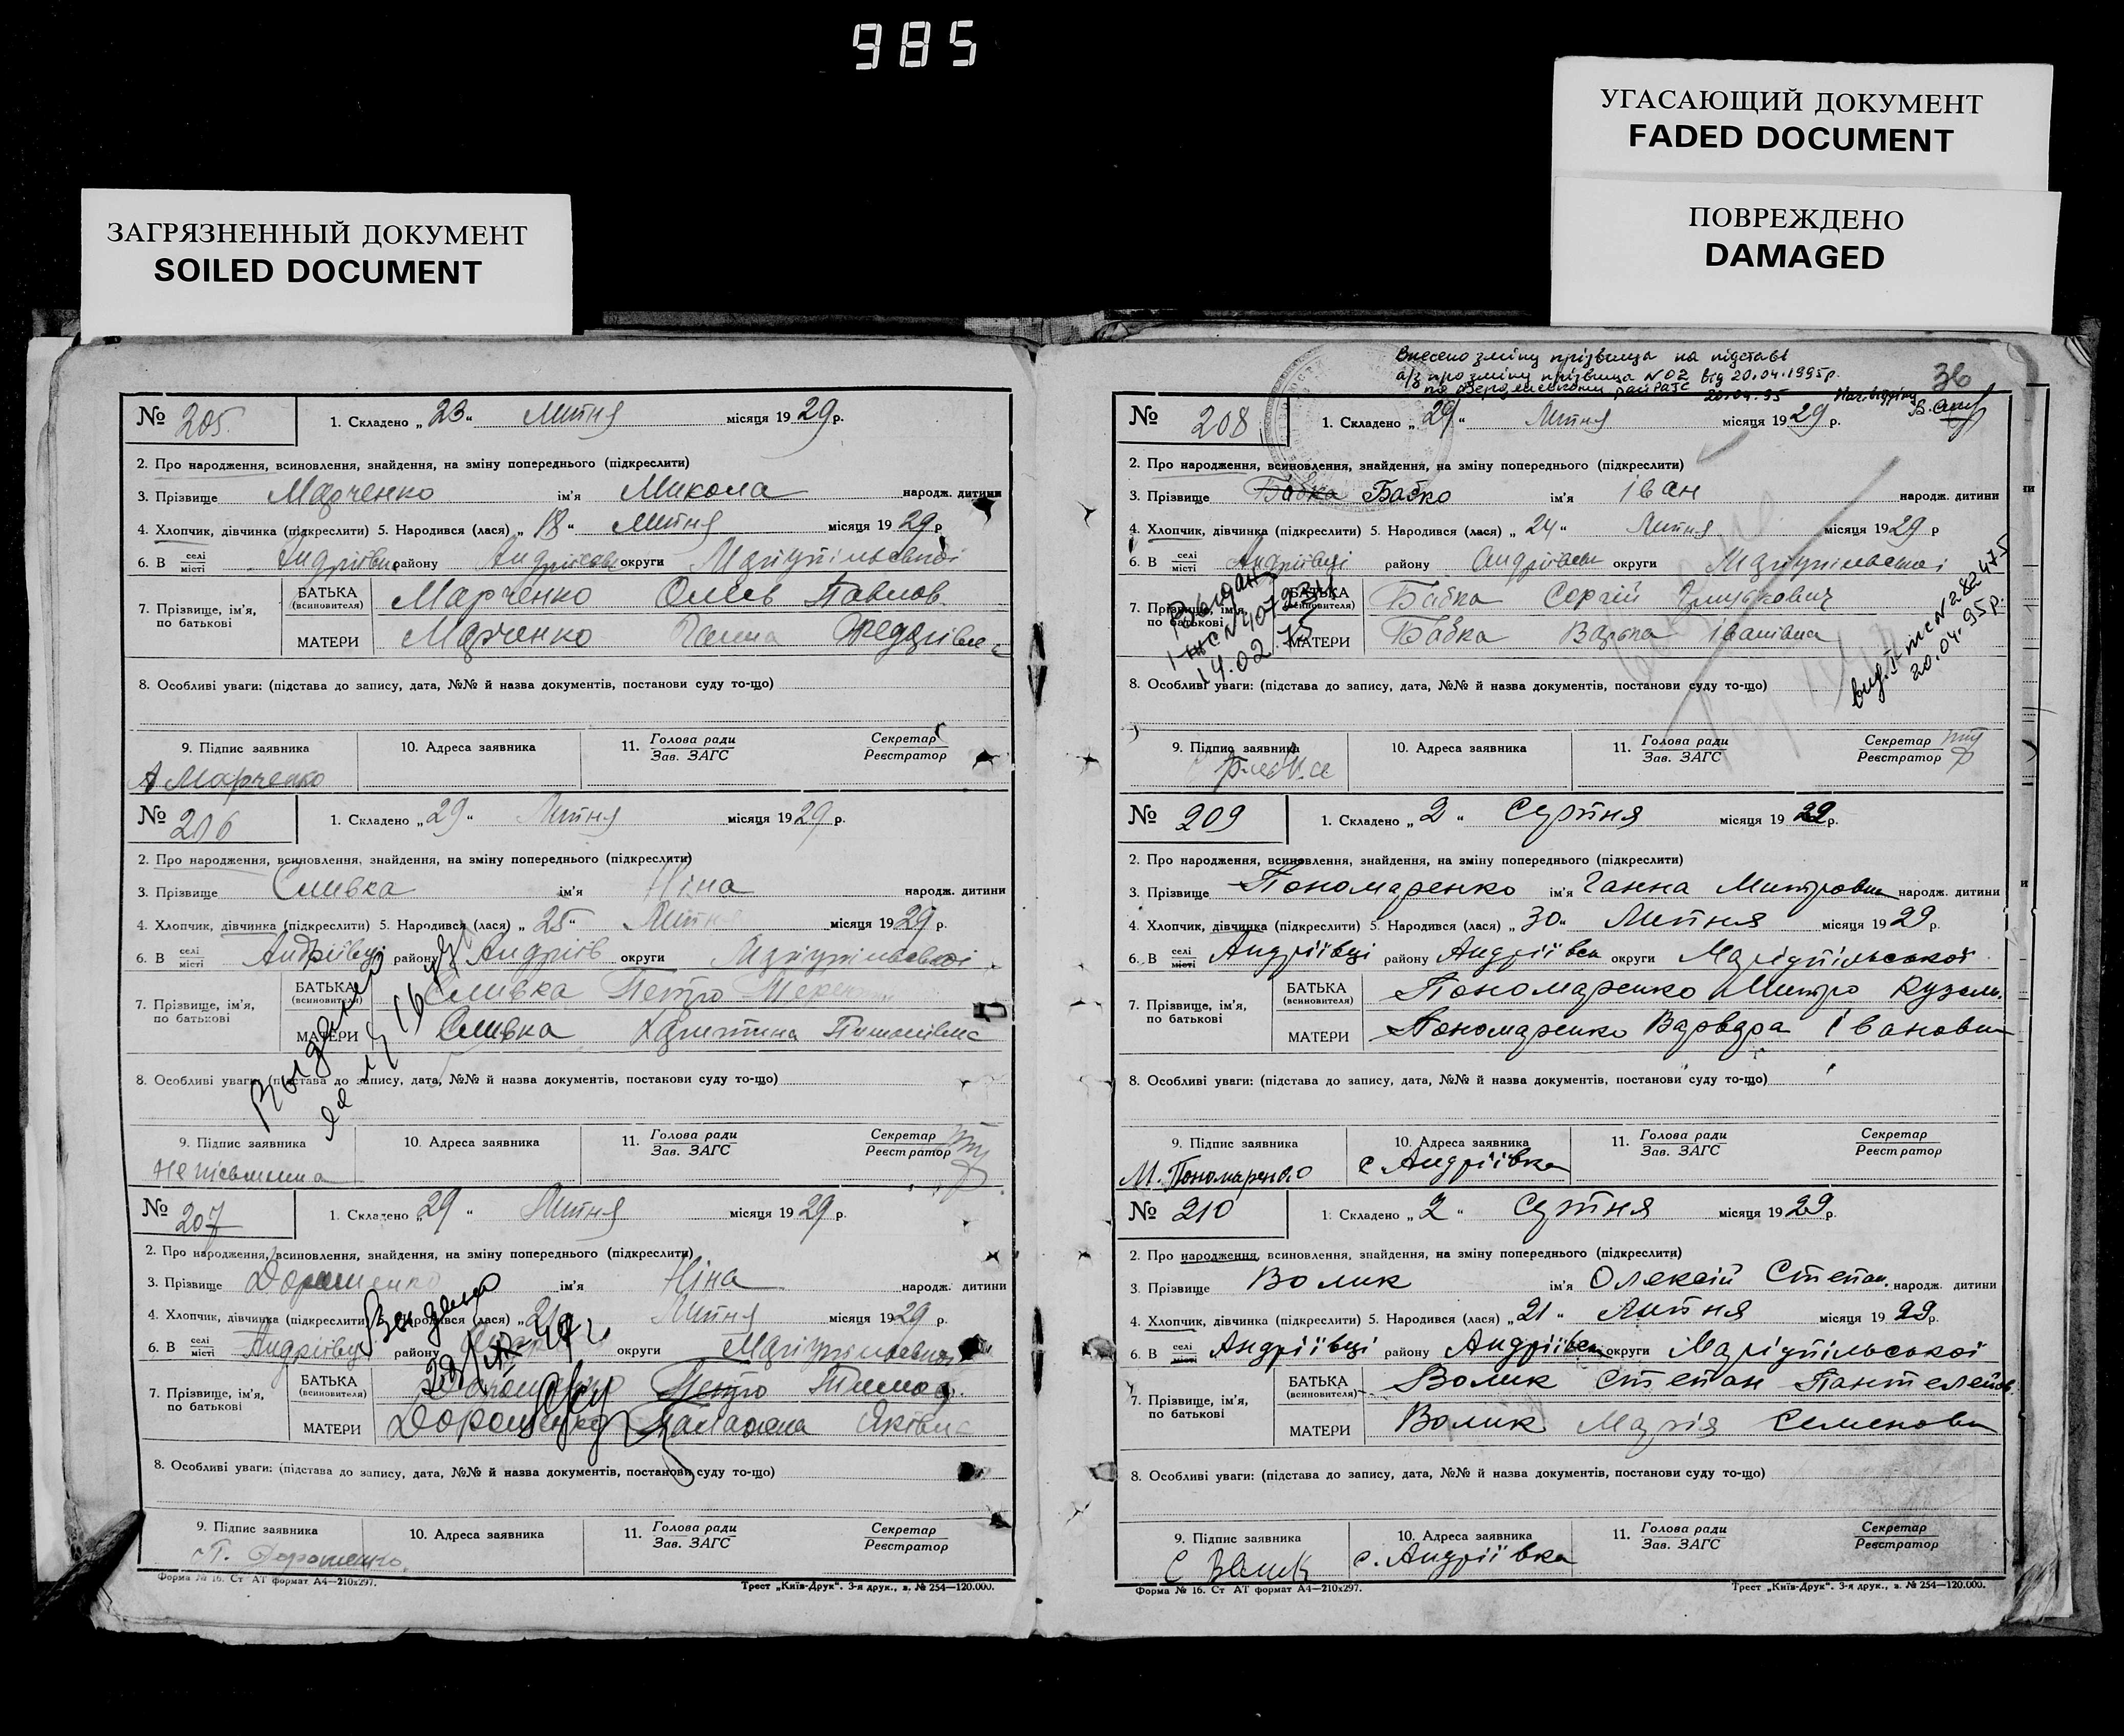 985
УГАСАЮЩИЙ ДОКУМЕНТ
FADED DOCUMENT
ПОВРЕЖДЕНО
DAMAGED
ЗАГРЯЗНЕННЫЙ ДОКУМЕНТ
SOILED DOCUMENT
№ 205. 1. Складено „23“ Липня місяця 1929 р.
2. Про народження, всиновлення, знайдення, на зміну попереднього (підкреслити)
3. Прізвище Марченко ім'я Микола народж. дитини
4. Хлопчик, дівчинка (підкреслити) 5. Народився (лася) „18“ Липня місяця 1929 р
6. В селі місті району округи Маріупільської
7. Прізвище, ім'я, по батькові БАТЬКА (всиновителя) Марченко Павлов.
МАТЕРИ Марченко
8. Особливі уваги: (підстава до запису, дата, №№ й назва документів, постанови суду то-що)
9. Підпис заявника 10. Адреса заявника 11. Голова ради Зав. ЗАГС Секретар Реєстратор
А Марченко
№ 206 1. Складено „29“ Липня місяця 1929 р.
2. Про народження, всиновлення, знайдення, на зміну попереднього (підкреслити)
3. Прізвище Сливка ім'я Ніна народж. дитини
4. Хлопчик, дівчинка (підкреслити) 5. Народився (лася) „25“ Липня місяця 1929 р.
6. В селі місті Андріївці району Андріїв округи Маріупільської
7. Прізвище, ім'я, по батькові БАТЬКА (всиновителя) Сливка Петро
МАТЕРИ Сливка
8. Особливі уваги: (підстава до запису, дата, №№ й назва документів, постанови суду то-що)
9. Підпис заявника 10. Адреса заявника 11. Голова ради Зав. ЗАГС Секретар Реєстратор
№ 207 1. Складено „29“ Липня місяця 1929 р.
2. Про народження, всиновлення, знайдення, на зміну попереднього (підкреслити)
3. Прізвище Дорошенко ім'я Ніна народж. дитини
4. Хлопчик, дівчинка (підкреслити) 5. Народився (лася) Липня місяця 1929 р.
6. В селі місті Андріївці району округи Маріупільської
7. Прізвище, ім'я, по батькові БАТЬКА (всиновителя) Петро
МАТЕРИ Дорошенко
8. Особливі уваги: (підстава до запису, дата, №№ й назва документів, постанови суду то-що)
9. Підпис заявника 10. Адреса заявника 11. Голова ради Зав. ЗАГС Секретар Реєстратор
Дорошенко
Форма № 16. Ст АТ формат А4—210х297. Трест „Київ-Друк“. 3-я друк., з. № 254—120.000.
Внесено зміну прізвища на підставі
а/з про зміну прізвища N02 від 20.04.1995р.
20.04.95
36
№ 208 1. Складено „29“ Липня місяця 1929 р.
2. Про народження, всиновлення, знайдення, на зміну попереднього (підкреслити)
3. Прізвище Бабка Бабко ім'я Іван народж. дитини
4. Хлопчик, дівчинка (підкреслити) 5. Народився (лася) „24“ Липня місяця 1929 р
6. В селі місті Андріївці району округи Маріупільської
7. Прізвище, ім'я, по батькові БАТЬКА (всиновителя) Бабка Сергій
МАТЕРИ Бабка Іванівна
14.02.75
вид. N 282475
20.04.95р.
8. Особливі уваги: (підстава до запису, дата, №№ й назва документів, постанови суду то-що)
9. Підпис заявника 10. Адреса заявника 11. Голова ради Зав. ЗАГС Секретар Реєстратор
№ 209 1. Складено „2“ Серпня місяця 1929 р.
2. Про народження, всиновлення, знайдення, на зміну попереднього (підкреслити)
3. Прізвище Пономаренко ім'я Ганна Митровна народж. дитини
4. Хлопчик, дівчинка (підкреслити) 5. Народився (лася) „30“ Липня місяця 1929 р.
6. В селі місті Андріївці району Андріївськ округи Маріупільської
7. Прізвище, ім'я, по батькові БАТЬКА (всиновителя) Пономаренко Митро Кузьм.
МАТЕРИ Пономаренко Варвара Івановна
8. Особливі уваги: (підстава до запису, дата, №№ й назва документів, постанови суду то-що)
9. Підпис заявника 10. Адреса заявника 11. Голова ради Зав. ЗАГС Секретар Реєстратор
М. Пономаренко с Андріївка
№ 210 1. Складено „2“ Серпня місяця 1929 р.
2. Про народження, всиновлення, знайдення, на зміну попереднього (підкреслити)
3. Прізвище Волик ім'я Олексій Степан. народж. дитини
4. Хлопчик, дівчинка (підкреслити) 5. Народився (лася) „21“ Липня місяця 1929 р.
6. В селі місті Андріївці району Андріївськ округи Маріупільської
7. Прізвище, ім'я, по батькові БАТЬКА (всиновителя) Волик Степан Пантелейов.
МАТЕРИ Волик Марія Семеновн
8. Особливі уваги: (підстава до запису, дата, №№ й назва документів, постанови суду то-що)
9. Підпис заявника 10. Адреса заявника 11. Голова ради Зав. ЗАГС Секретар Реєстратор
С Волик с. Андріївка
Форма № 16. Ст АТ формат А4—210х297. Трест „Київ-Друк“. 3-я друк., з. № 254—120.000.